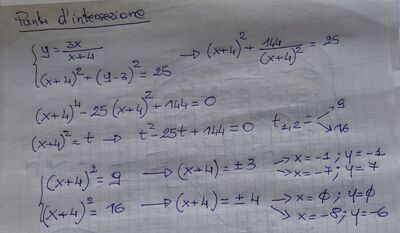 Punti d'intersezione
{ y = 3x/(x+4) → (x+4)² + 144/(x+4)² = 25
(x+4)² + (y-3)² = 25
(x+4)⁴ - 25(x+4)² + 144 = 0
(x+4)² = t → t² - 25t + 144 = 0 t₁,₂ = 9 16
{ (x+4)² = 9 → (x+4) = ±3 → x = -1 ; y = -1
→ x = -7 ; y = 7
(x+4)² = 16 → (x+4) = ±4 → x = ϕ ; y = ϕ
→ x = -8 ; y = -6